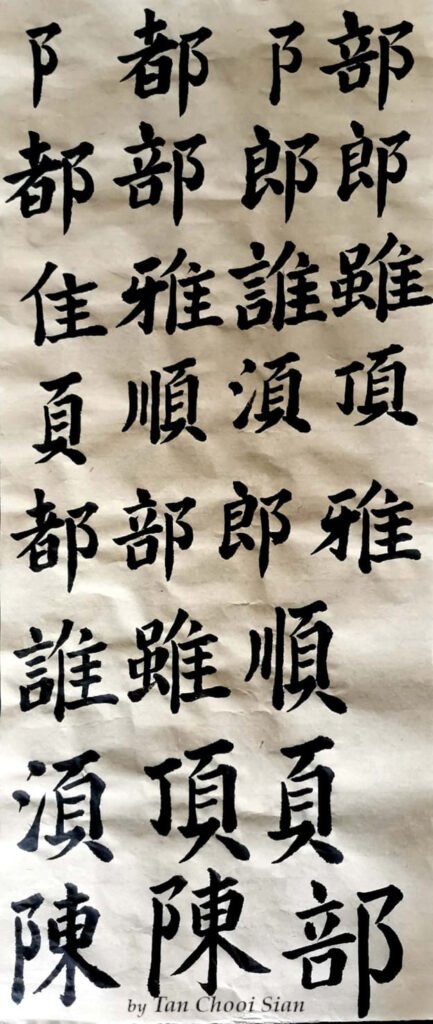 阝 都 阝 部
都 部 郎 郎
隹 雅 誰 雖
頁 順 湏 頂
都 部 郎 雅
誰 雖 順
湏 頂 頁
陳 陳 部
by Tan Chooi Sian